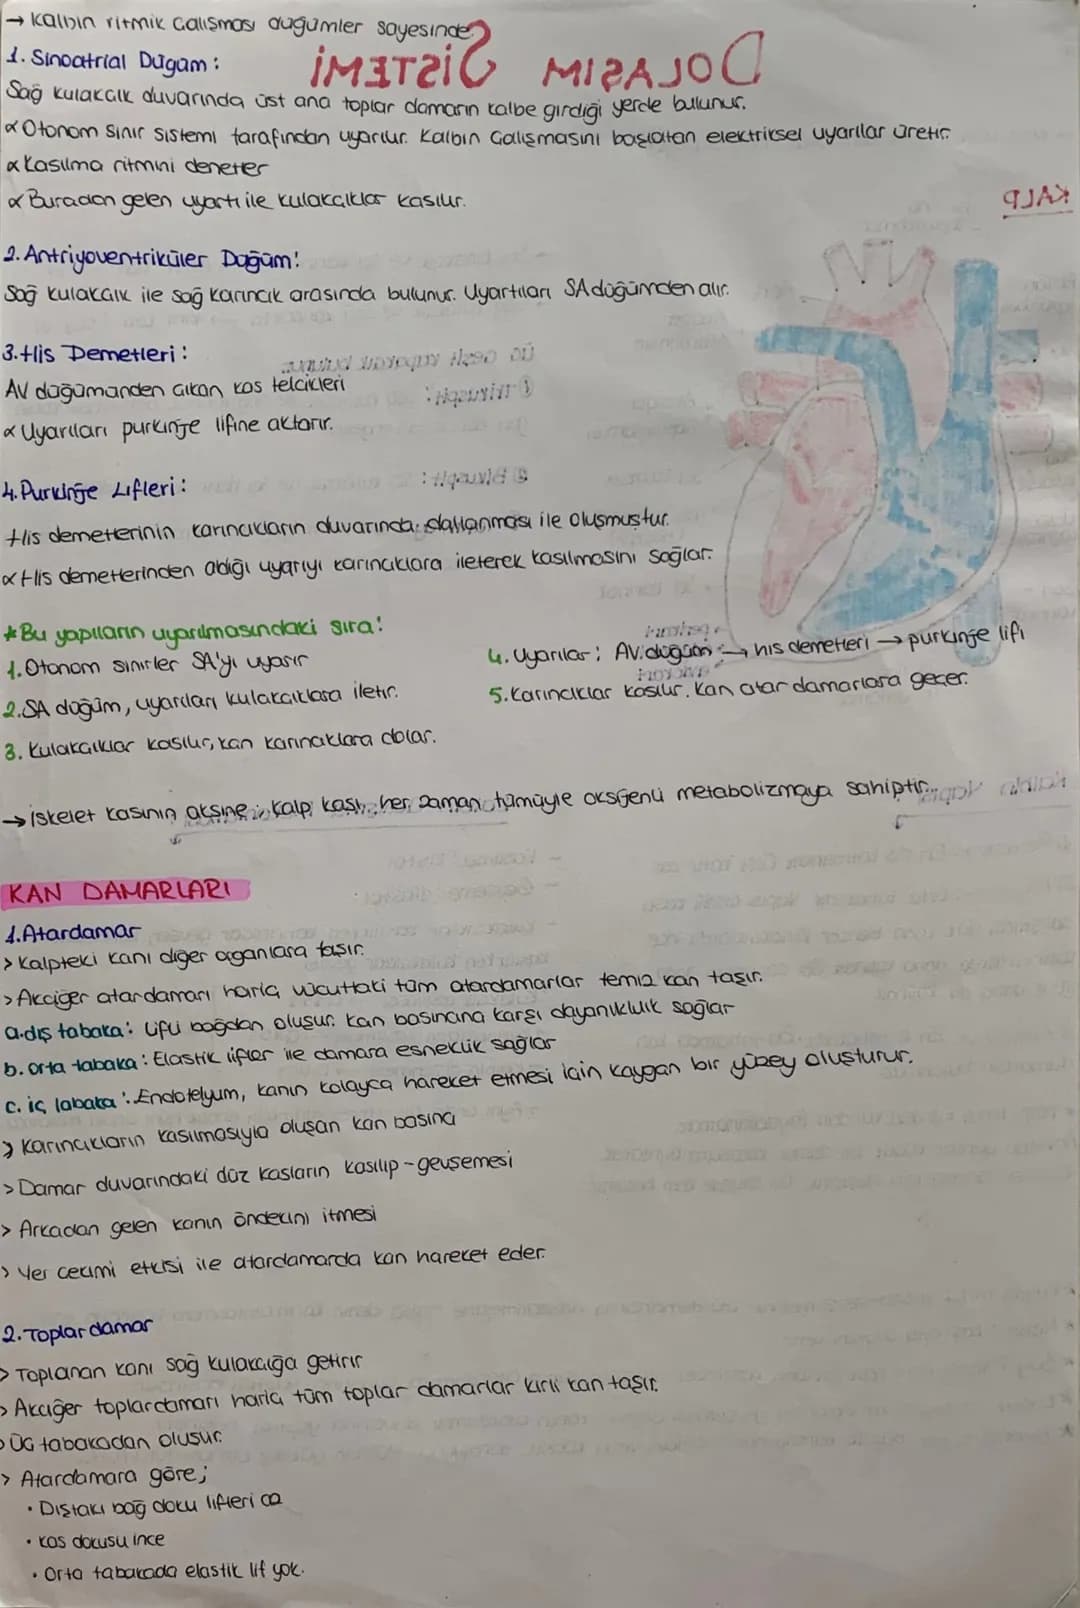 → Kalbin ritmik çalışması düğümler sayesinde.
DOLAŞIM SİSTEMİ
1. Sinoatrial Düğüm:
Sağ kulakçık duvarında üst ana toplar damarın kalbe girdiği yerde bulunur.
α Otonom sinir sistemi tarafından uyarılır. Kalbin çalışmasını başlatan elektriksel uyarılar üretir.
α Kasılma ritmini denetler
α Buradan gelen uyartı ile kulakçıklar kasılır.
KALP
2. Antriyoventriküler Düğüm:
Sağ kulakçık ile sağ karıncık arasında bulunur. Uyartıları SA düğümden alır.
3. His Demetleri:
AV düğümünden çıkan kas telcikleri
α Uyarıları purkinje lifine aktarır.
4. Purkinje Lifleri:
His demetlerinin karıncıkların duvarında dallanması ile oluşmuştur.
α His demetlerinden aldığı uyarıyı karıncıklara ileterek kasılmasını sağlar.
* Bu yapıların uyarılmasındaki sıra:
1. Otonom sinirler SA'yı uyarır
2. SA düğüm, uyarıları kulakçıklara iletir.
3. Kulakçıklar kasılır, kan karıncıklara dolar.
4. Uyarılar; AV. düğüm → his demetleri → purkinje lifi
5. Karıncıklar kasılır. Kan atar damarlara geçer.
→ İskelet kasının aksine, kalp kası, her zaman tümüyle oksijenli metabolizmaya sahiptir.
KAN DAMARLARI
1. Atardamar
> Kalpteki kanı diğer organlara taşır.
> Akciğer atardamarı hariç vücuttaki tüm atardamarlar temiz kan taşır.
a. dış tabaka: Lifli bağdan oluşur. Kan basıncına karşı dayanıklılık sağlar
b. orta tabaka: Elastik lifler ile damara esneklik sağlar
c. iç tabaka: Endotelyum, kanın kolayca hareket etmesi için kaygan bir yüzey oluşturur.
> Karıncıkların kasılmasıyla oluşan kan basıncı
> Damar duvarındaki düz kasların kasılıp-gevşemesi
> Arkadan gelen kanın öndekini itmesi
> Yer çekimi etkisi ile atardamarda kan hareket eder.
2. Toplardamar
> Toplanan kanı sağ kulakçığa getirir
> Akciğer toplardamarı hariç tüm toplar damarlar kirli kan taşır.
> Üç tabakadan oluşur.
> Atardamara göre;
• Dıştaki bağ doku lifleri az
• kas dokusu ince
• Orta tabakada elastik lif yok.